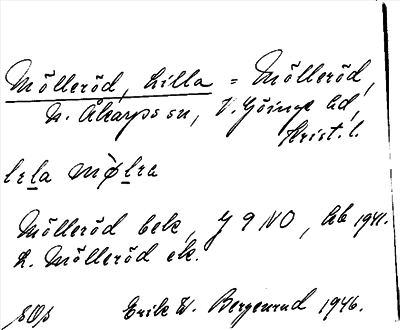 Mölleröd, Lilla = Mölleröd,
N. Åkarps sn, V. Göinge hd,
Krist. l.
lɛla mø̀lra
Mölleröd bek, J 9 NO, Ab 1941.
L. Mölleröd ek.
Erik W. Bergenrud 1946.